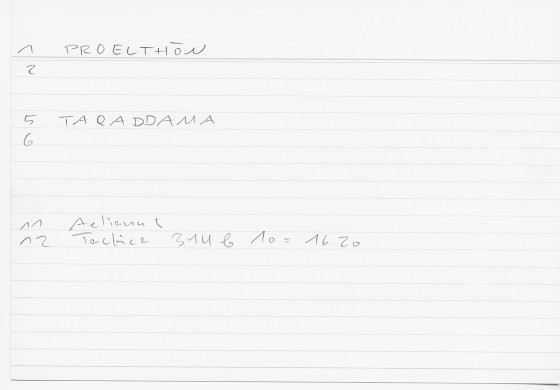 1 PROELTHŌN
2
5 TAQADDAMA
6
11 Aelianus
12 Tactica 314 b 10 = 16.20